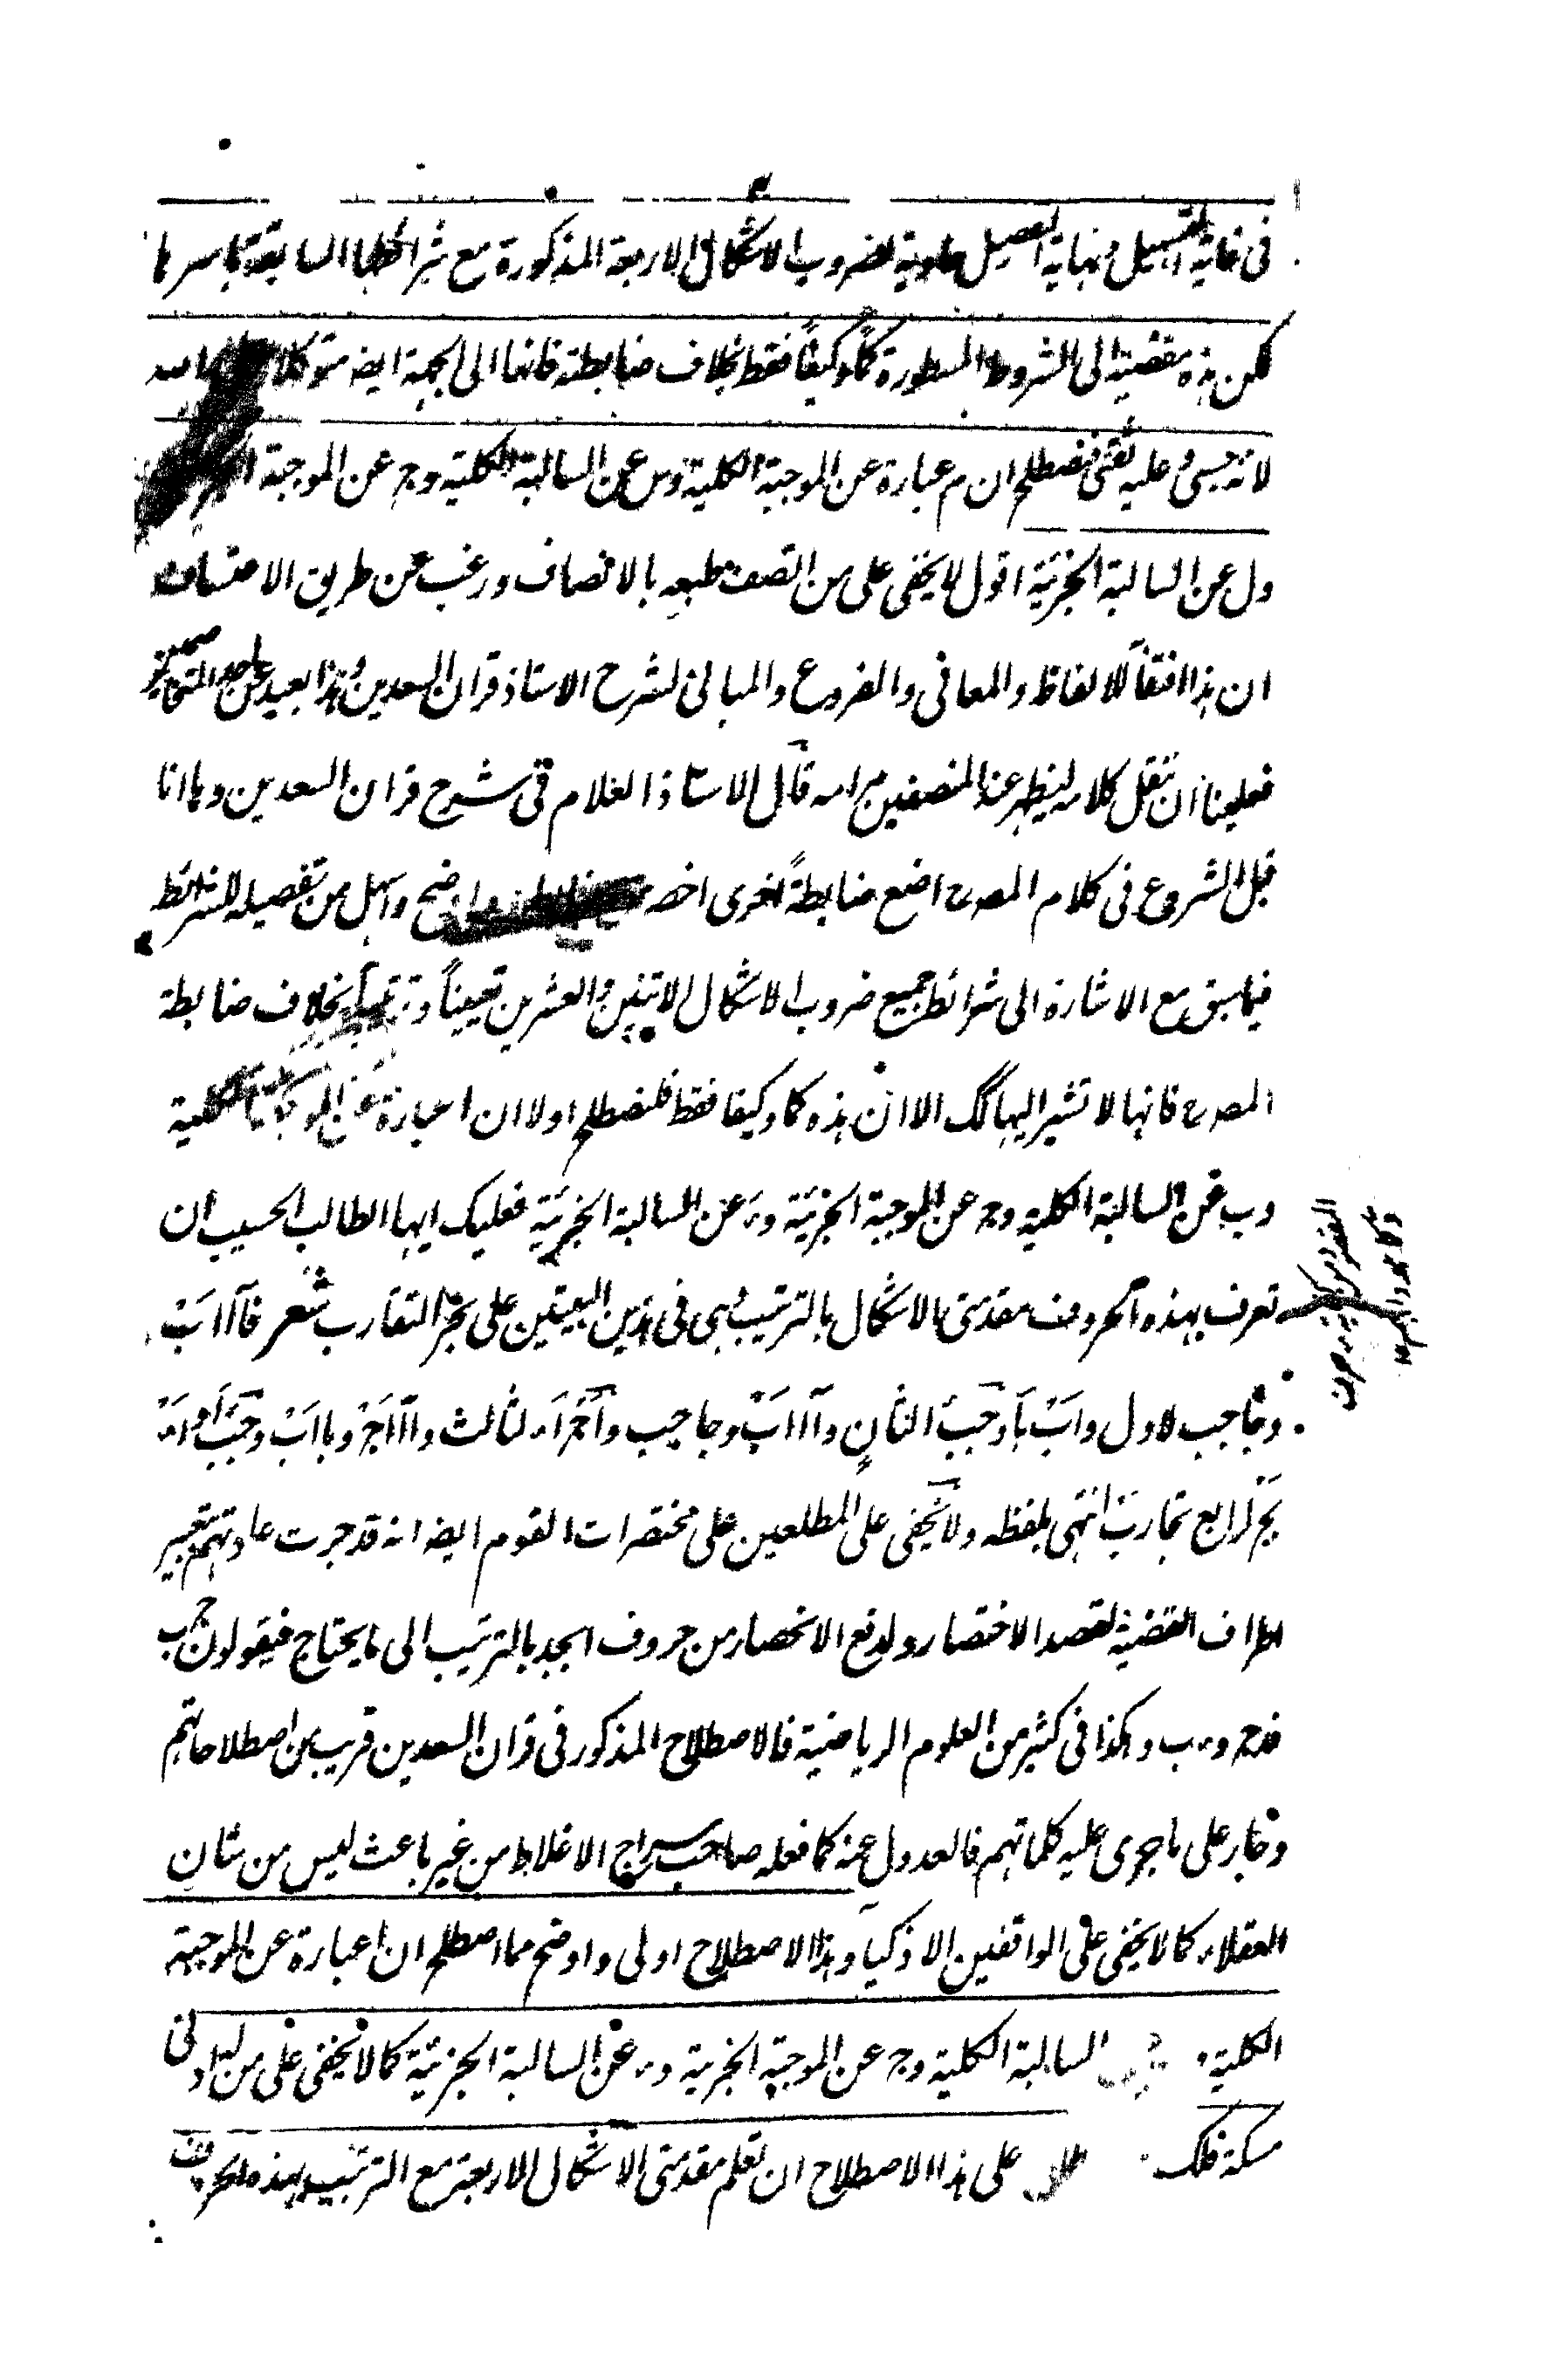 فى غاية التسهيل ونهاية التفصيل حاوية لضروب الاشكال الاربعة المذكورة مع شرائطها السابقة باسرها
لكن هذه مقضية الى الشروط المسطورة كمًا وكيفًا فقط بخلاف ضابطة فانها الى الجهة ايضه متوكلا
لانه حسبى وعليه ثقتى فنصطلح ان م عبارة عن الموجبة الكلية وس عن السالبة الكلية وج عن الموجبة
ول عن السالبة الجزئية اقول لا يخفى على من اتصف طبعه بالانصاف ورغب عن طريق الاعتساف
ان هذا اقتفاً للالفاظ والمعانى والفروع والمبانى لشرح الاستاذ قران السعدين وهذا بعيد عن
فعلينا ان ننقل كلامه ليظهر عند المنصفين مرامه قال الاستاذ العلام فى شرح قران السعدين وها انا
قبل الشروع فى كلام المصـ اضع ضابطةً اخرى اخصر واوضح واسهل من تفصيله للشرائط
فيما سبق مع الاشارة الى شرائط جميع ضروب الاشكال الاثنين والعشرين تعييناً وترتيباً بخلاف ضابطة
المصـ فانها لا تشير اليها كك الا ان هذه كما وكيفا فقط فلنصطلح اولا ان ا عبارة عن الموجبة الكلية
وب عن السالبة الكلية وج عن الموجبة الجزئية وء عن السالبة الجزئية فعليك ايها الطالب الحسيب ان
تعرف بهذه الحروف مقدمتى الاشكال بالترتيب وهى فى هذين البيتين على بحر التقارب شعر فاآاآب
وجا جب لاول واب بآ وجب الثان وآااب وجا جب
بج لرابع تجارب انتهى بلفظه ولا يخفى على المطلعين على مختصرات القوم ايضه انه قد جرت عادتهم بتعبير
اطراف القضية لقصد الاختصار ولدفع الانحصار من حروف ابجد بالترتيب الى ما يحتاج فيقولون ج ب
فدج وء ب وهكذا فى كثير من العلوم الرياضية فالاصطلاح المذكور فى قران السعدين قريب من اصطلاحاتهم
وجار على ما جرى عليه كلماتهم فالعدول عنه كما فعله صاحب سراج الاغلاط من غير باعث ليس من شان
العقلاء كما لا يخفى على الواقفين الاذكيا وهذا الاصطلاح اولى واوضح مما اصطلح ان ا عبارة عن الموجبة
الكلية السالبة الكلية وج عن الموجبة الجزية وء عن السالبة الجزئية كما لا يخفى على من له ادنى
مسكة فلك على هذا الاصطلاح ان تعلم مقدمتى الاشكال الاربعة مع الترتيب بهذه الحروف